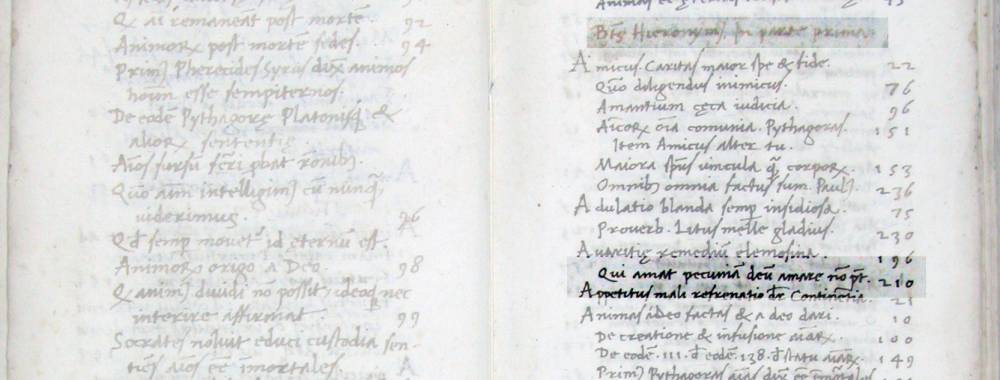 Q ai remaneat post mortē. 92
Animorꝝ post mortē sedes. 94
Primꝰ Pherecides Syrus dixit animos
hoīm esse sempiternos.
De eodē Pythagorę Platonisqꝫ &
aliorꝝ sententię.
Quō aīm intelligimꝰ cū nunqꝫ
viderimus. 96
Qđ semp movet id eternū est.
Animorꝝ origo a Deo. 98
Q animꝰ dividi nō possit, ideoqꝫ nec
interire affirmat. 99
Socrates noluit educi custodia sen-
tiēs aīos eē īmortales.
Btꝰ Hieronymꝰ, In parte prima.
Amicus. Caritas maior spe & fide. 22
Quō diligendus inimicus. 76
Amantium cęca iudicia. 96
Aīcorꝝ oīa comunia. Pythagoras. 151
Item Amicus alter tu.
Maiora spūs vincula qꝫ corporꝝ. 153
Omnibꝫ omnia factus sum. Paulꝰ. 236
Adulatio blanda semp insidiosa. 75
Proverb. Litus melle gladius. 230
Avaritię remediū elemosina. 196
Qui amat pecuniā deū amare nō pt̄. 210
Appetitus mali refrenatio dr̄ Continētia. 21
Animas ideo factas & a deo dari. 10
De creatione & infusione aīarꝝ. 100
De eodē. 111. đ eodē. 138. đ statu aīarꝝ. 149